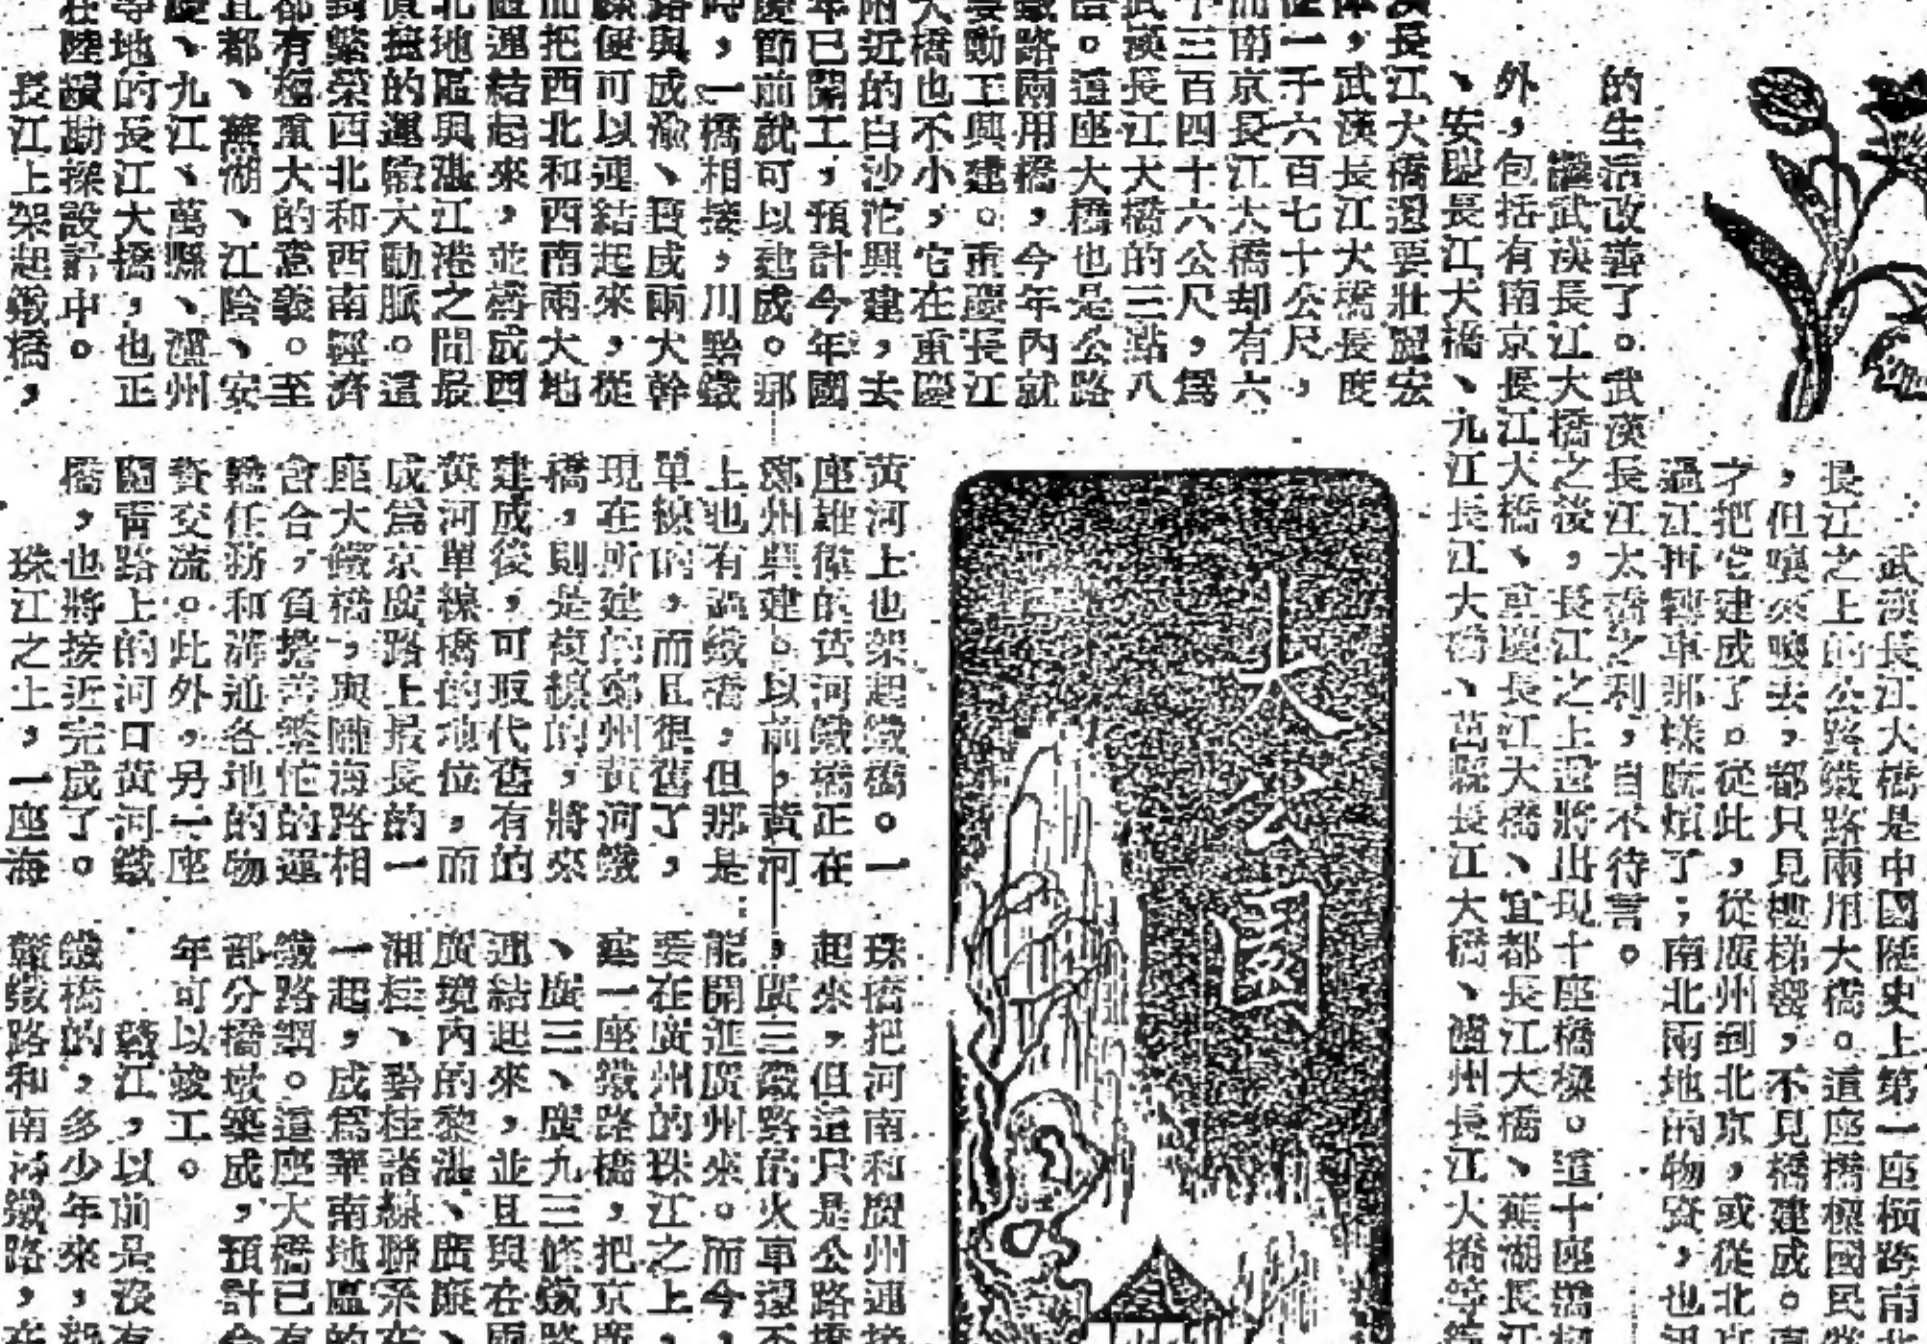 武漢長江大橋是中國歷史上第一座橫跨南
長江之上的公路鐵路兩用大橋。這座橋樑國民
都只見樓梯響,不見橋建成。
才把它建成了。從此,從廣州到北京,或從北
過江再轉車那樣麻煩了;南北兩地的物資,也
的生活改善了。武漢長江大橋之利,自不待言。
繼武漢長江大橋之後,長江之上還將出現十座橋樑。這十座橋樑
外,包括有南京長江大橋、重慶長江大橋、宜都長江大橋、蕪湖長江
、安慶長江大橋、九江長江大橋、萬縣長江大橋、瀘州長江大橋等
漢長江大橋還要壯麗宏
,武漢長江大橋長度
一千六百七十公尺,
而南京長江大橋却有六
千三百四十六公尺,爲
武漢長江大橋的三點八
倍。這座大橋也是公路
鐵路兩用橋,今年內就
要動工興建。重慶長江
大橋也不小,它在重慶
附近的白沙沱興建,去
年已開工,預計今年國
慶節前就可以建成。那
時,一橋相接,川黔鐵
路與成渝、寶成兩大幹
線便可以連結起來,從
而把西北和西南兩大地
區連結起來,並構成西
北地區與湛江港之間最
直接的運輸大動脈。這
對繁榮西北和西南經濟
都有極重大的意義。至
宜都、蕪湖、江陰、安
慶、九江、萬縣、瀘州
等地的長江大橋,也正
在陸續勘探設計中。
長江上架起鐵橋,
大公園
黃河上也架起鐵橋。一
座雄偉的黃河鐵橋正在
鄭州興建。以前,黃河
上也有過鐵橋,但那是
單線的,而且很舊了,
現在所建的鄭州黃河鐵
橋,則是複線的,將來
建成後,可取代舊有的
黃河單線橋的地位,而
成爲京廣路上最長的一
座大鐵橋,與隴海路相
會合,負擔著繁忙的運
輸任務和溝通各地的物
資交流。此外,另一座
蘭青路上的河口黃河鐵
橋,也將接近完成了。
珠江之上,一座海
珠橋把河南和廣州連接
起來,但這只是公路橋
,廣三鐵路的火車還不
能開進廣州來。而今,
要在廣州的珠江之上,
建一座鐵路橋,把京廣
、廣三、廣九三條鐵路
連結起來,並且與在兩
廣境內的黎湛、
湘桂、黔桂諸線聯系在
一起,成爲華南地區的
鐵路網。這座大橋已有
部分橋墩築成,預計今
年可以竣工。
贛江,以前是沒有
鐵橋的,多少年來,
鐵路和南潯鐵路,